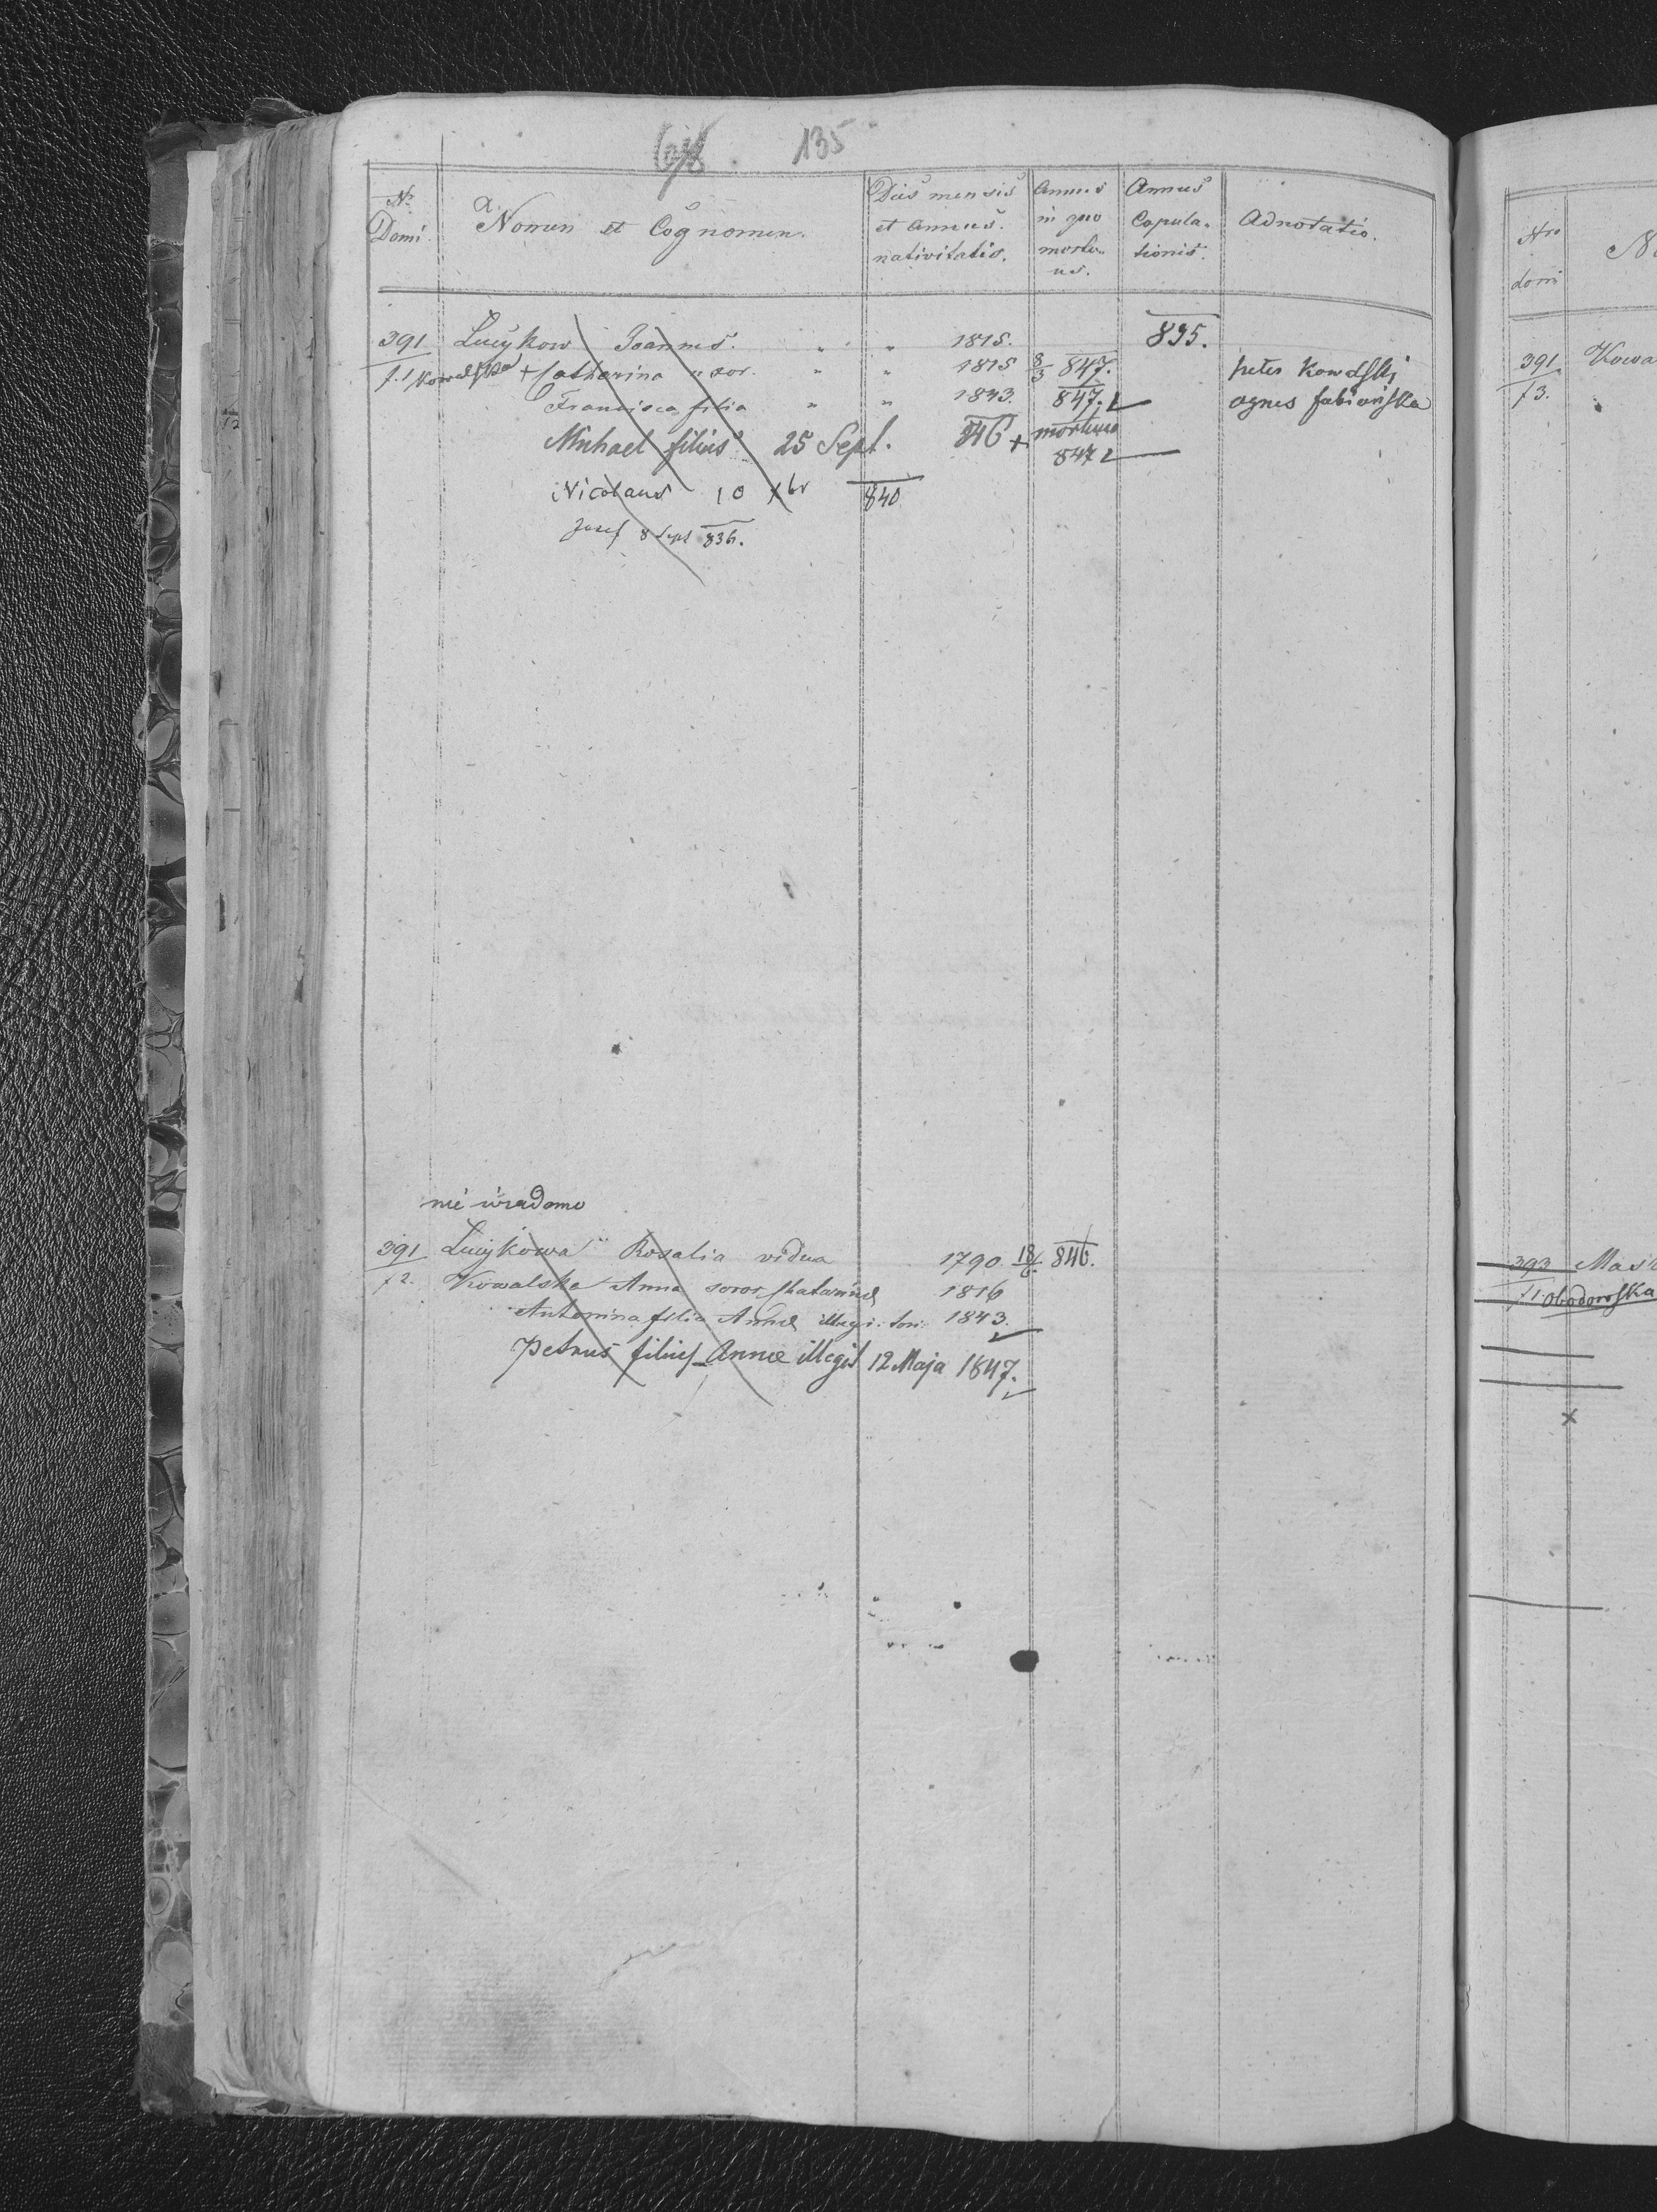 135
Nr Domi
Nomen et Cognomen.
Dies mensis et annus nativitatis.
Annus in quo mortu-us.
Annus Copula-tionis.
Adnotatio.
391 Lucykow Joannes. " " 1815. 835.
f.1 Kowalska + Catharina uxor. " " 1815 8/3 847. peter Kowalski
Francisca filia " " 1843. 847. agnes fabiańska
Michael filius 25 Sept. 846 + mortuus
847
Nicolaus 10 Xbr 840
Josef 8 Sept 836.
nie wiadomo
391 Lucykowa Rosalia vidua 1790. 18/6 846.
f2. Kowalska Anna soror Katarinæ 1816
Antonina filia Annæ illegi: tori: 1843.
Petrus filius Annæ illegit 12 Maja 1847.
Nro domi
391 Kowa
f3.
393 Mas
f1 Obodowska
x